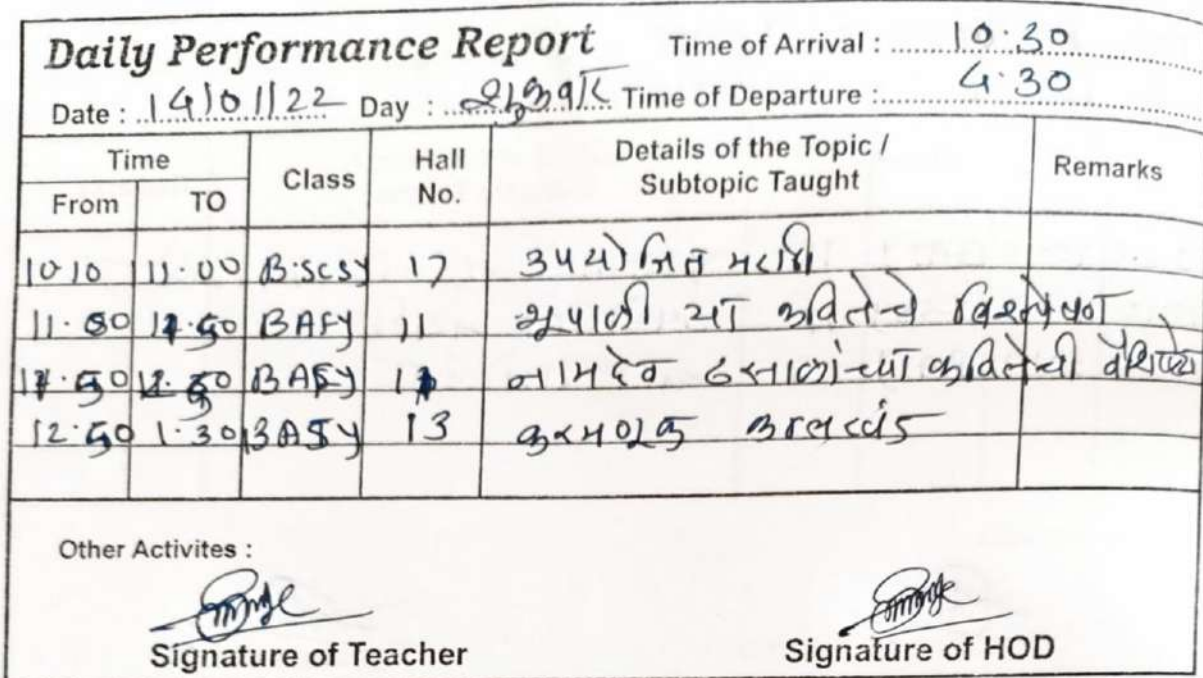 Daily Performance Report Time of Arrival : 10.30
Date : 14/01/22 Day : शुक्रवार Time of Departure : 4.30
Time Class Hall No. Details of the Topic / Subtopic Taught Remarks
From TO
10.10 11.00 B.sc sy 17 उपयोजित मराठी
11.00 11.50 BAFY 11 या कवितेचे विश्लेषण
11.50 12.50 BASY नामदेव ढसाळांच्या कवितेची वैशिष्ट्ये
12.50 1.30 BASY 13 करमणूक
Other Activites :
Signature of Teacher Signature of HOD